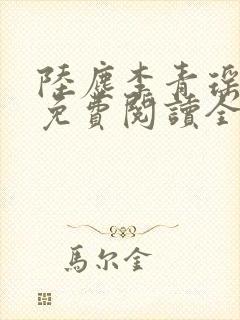 陸塵李青瑤
免費閱讀全
馬尔金